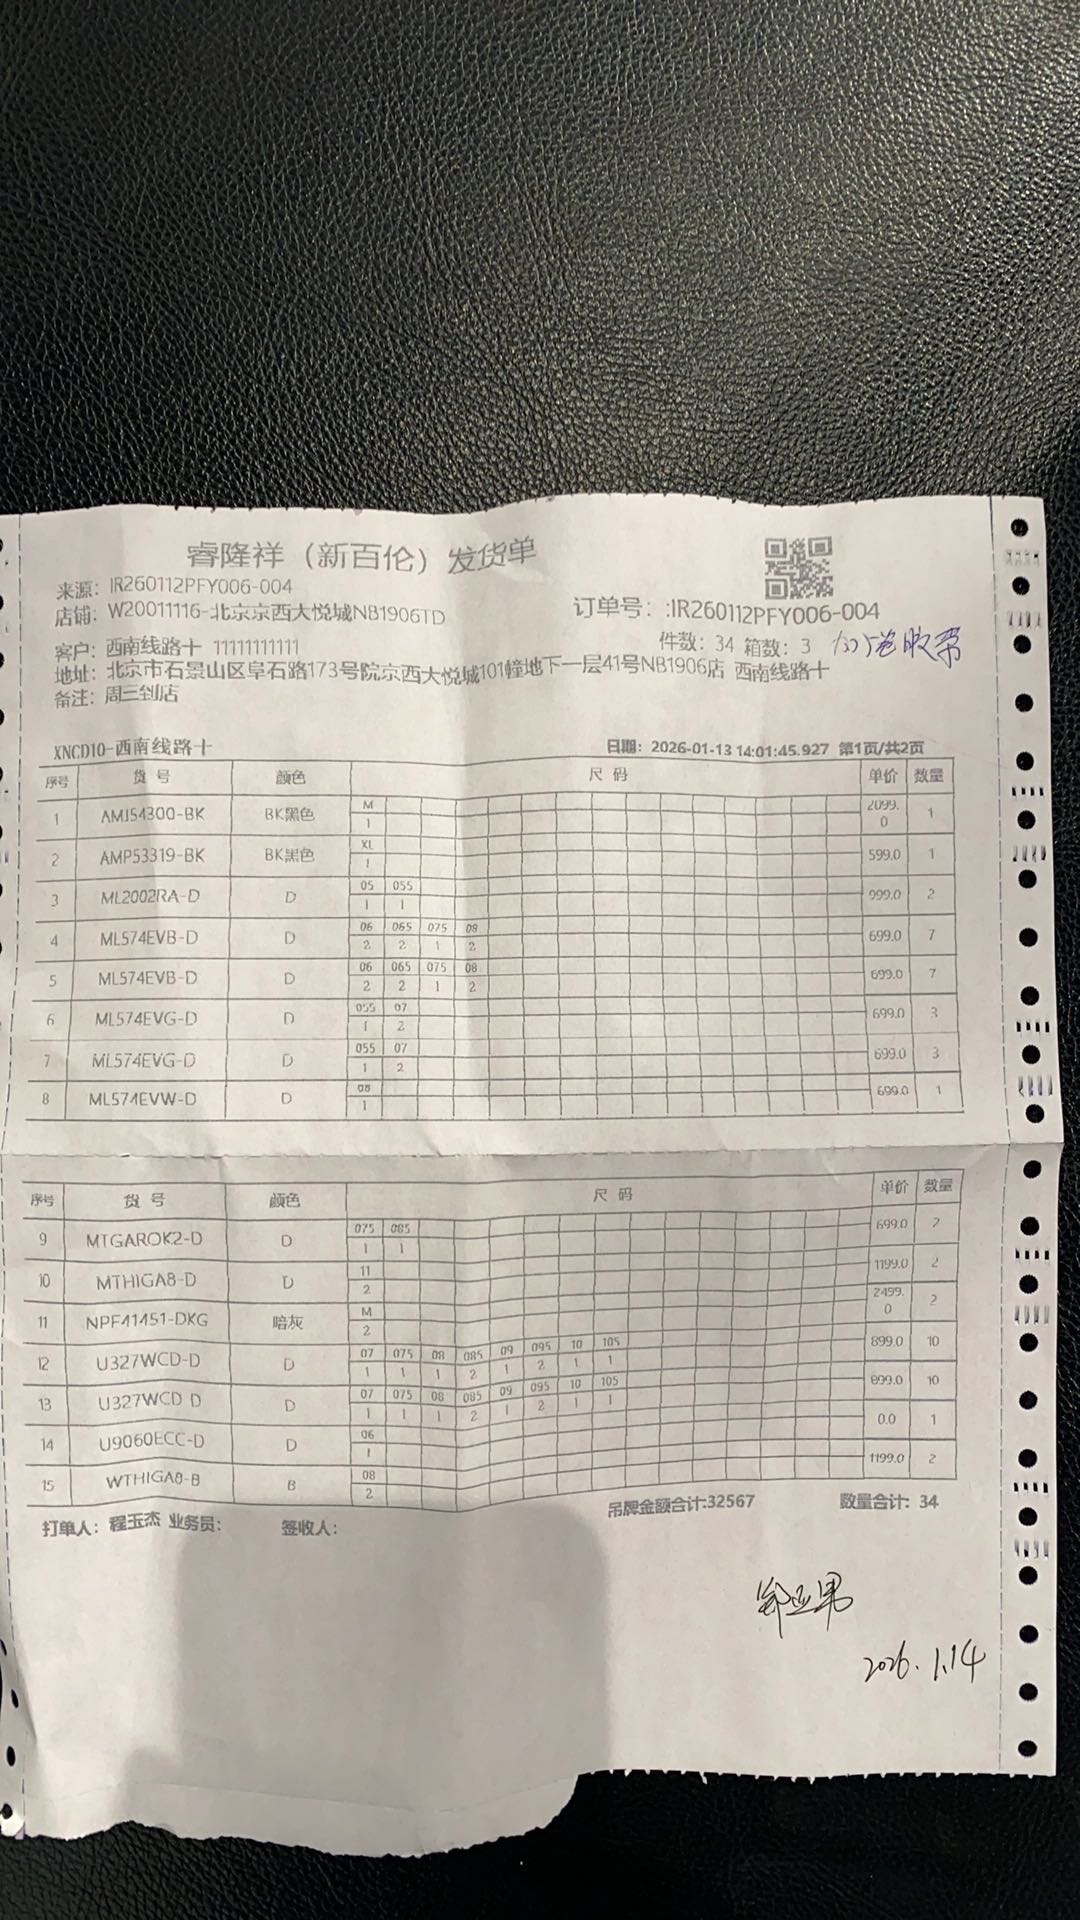 睿隆祥（新百伦）发货单
来源：IR260112PFY006-004
店铺：W20011116-北京京西大悦城NB1906TD
订单号：:IR260112PFY006-004
客户：西南线路十 11111111111
件数：34 箱数：3
地址：北京市石景山区阜石路173号院京西大悦城101幢地下一层41号NB1906店 西南线路十
备注：周三到店
XNCD10-西南线路十 日期：2026-01-13 14:01:45.927 第1页/共2页
序号 货号 颜色 尺码 单价 数量
1 AMJ54300-BK BK黑色 M 1 2099.0 1
2 AMP53319-BK BK黑色 XL 1 599.0 1
3 ML2002RA-D D 05 055 1 1 999.0 2
4 ML574EVB-D D 06 065 075 08 2 2 1 2 699.0 7
5 ML574EVB-D D 06 065 075 08 2 2 1 2 699.0 7
6 ML574EVG-D D 055 07 1 2 699.0 3
7 ML574EVG-D D 055 07 1 2 699.0 3
8 ML574EVW-D D 08 1 699.0 1
序号 货号 颜色 尺码 单价 数量
9 MTGAROK2-D D 075 085 1 1 699.0 2
10 MTHIGA8-D D 11 2 1199.0 2
11 NPF41451-DKG 暗灰 M 2 2499.0 2
12 U327WCD-D D 07 075 08 085 09 095 10 105 1 1 1 2 1 2 1 1 899.0 10
13 U327WCD-D D 07 075 08 085 09 095 10 105 1 1 1 2 1 2 1 1 899.0 10
14 U9060ECC-D D 06 1 0.0 1
15 WTHIGA8-B B 08 2 1199.0 2
吊牌金额合计:32567 数量合计：34
打单人：程玉杰 业务员： 签收人：
郑亚男
2026.1.14